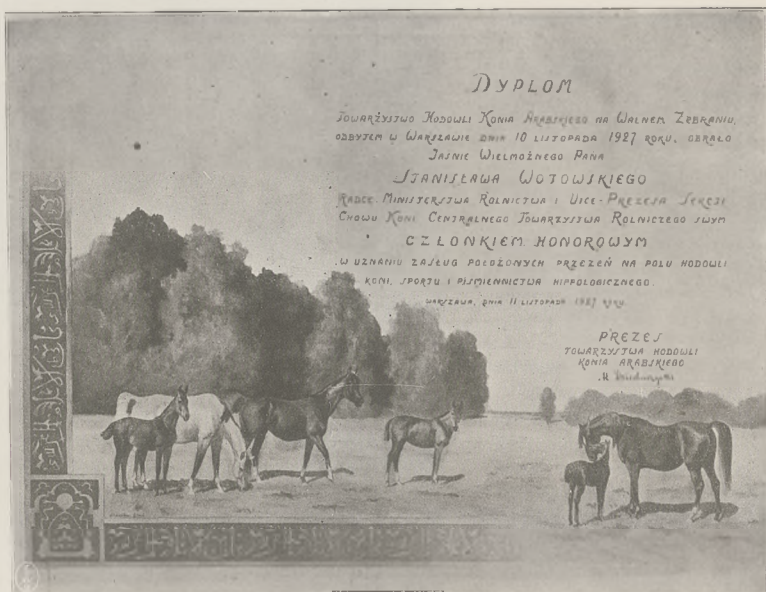 DYPLOM
TOWARZYSTWO HODOWLI KONIA ARABSKIEGO NA WALNEM ZEBRANIU,
ODBYTEM W WARSZAWIE DNIA 10 LISTOPADA 1927 ROKU, OBRAŁO
JAŚNIE WIELMOŻNEGO PANA
STANISŁAWA WOTOWSKIEGO
RADCĘ MINISTERSTWA ROLNICTWA I VICE-PREZESA SEKCJI
CHOWU KONI CENTRALNEGO TOWARZYSTWA ROLNICZEGO SWYM
CZŁONKIEM HONOROWYM
W UZNANIU ZASŁUG POŁOŻONYCH PRZEZEŃ NA POLU HODOWLI
KONI, SPORTU I PIŚMIENNICTWA HIPPOLOGICZNEGO.
WARSZAWA, DNIA 11 LISTOPADA 1927 ROKU.
PREZES
TOWARZYSTWA HODOWLI
KONIA ARABSKIEGO